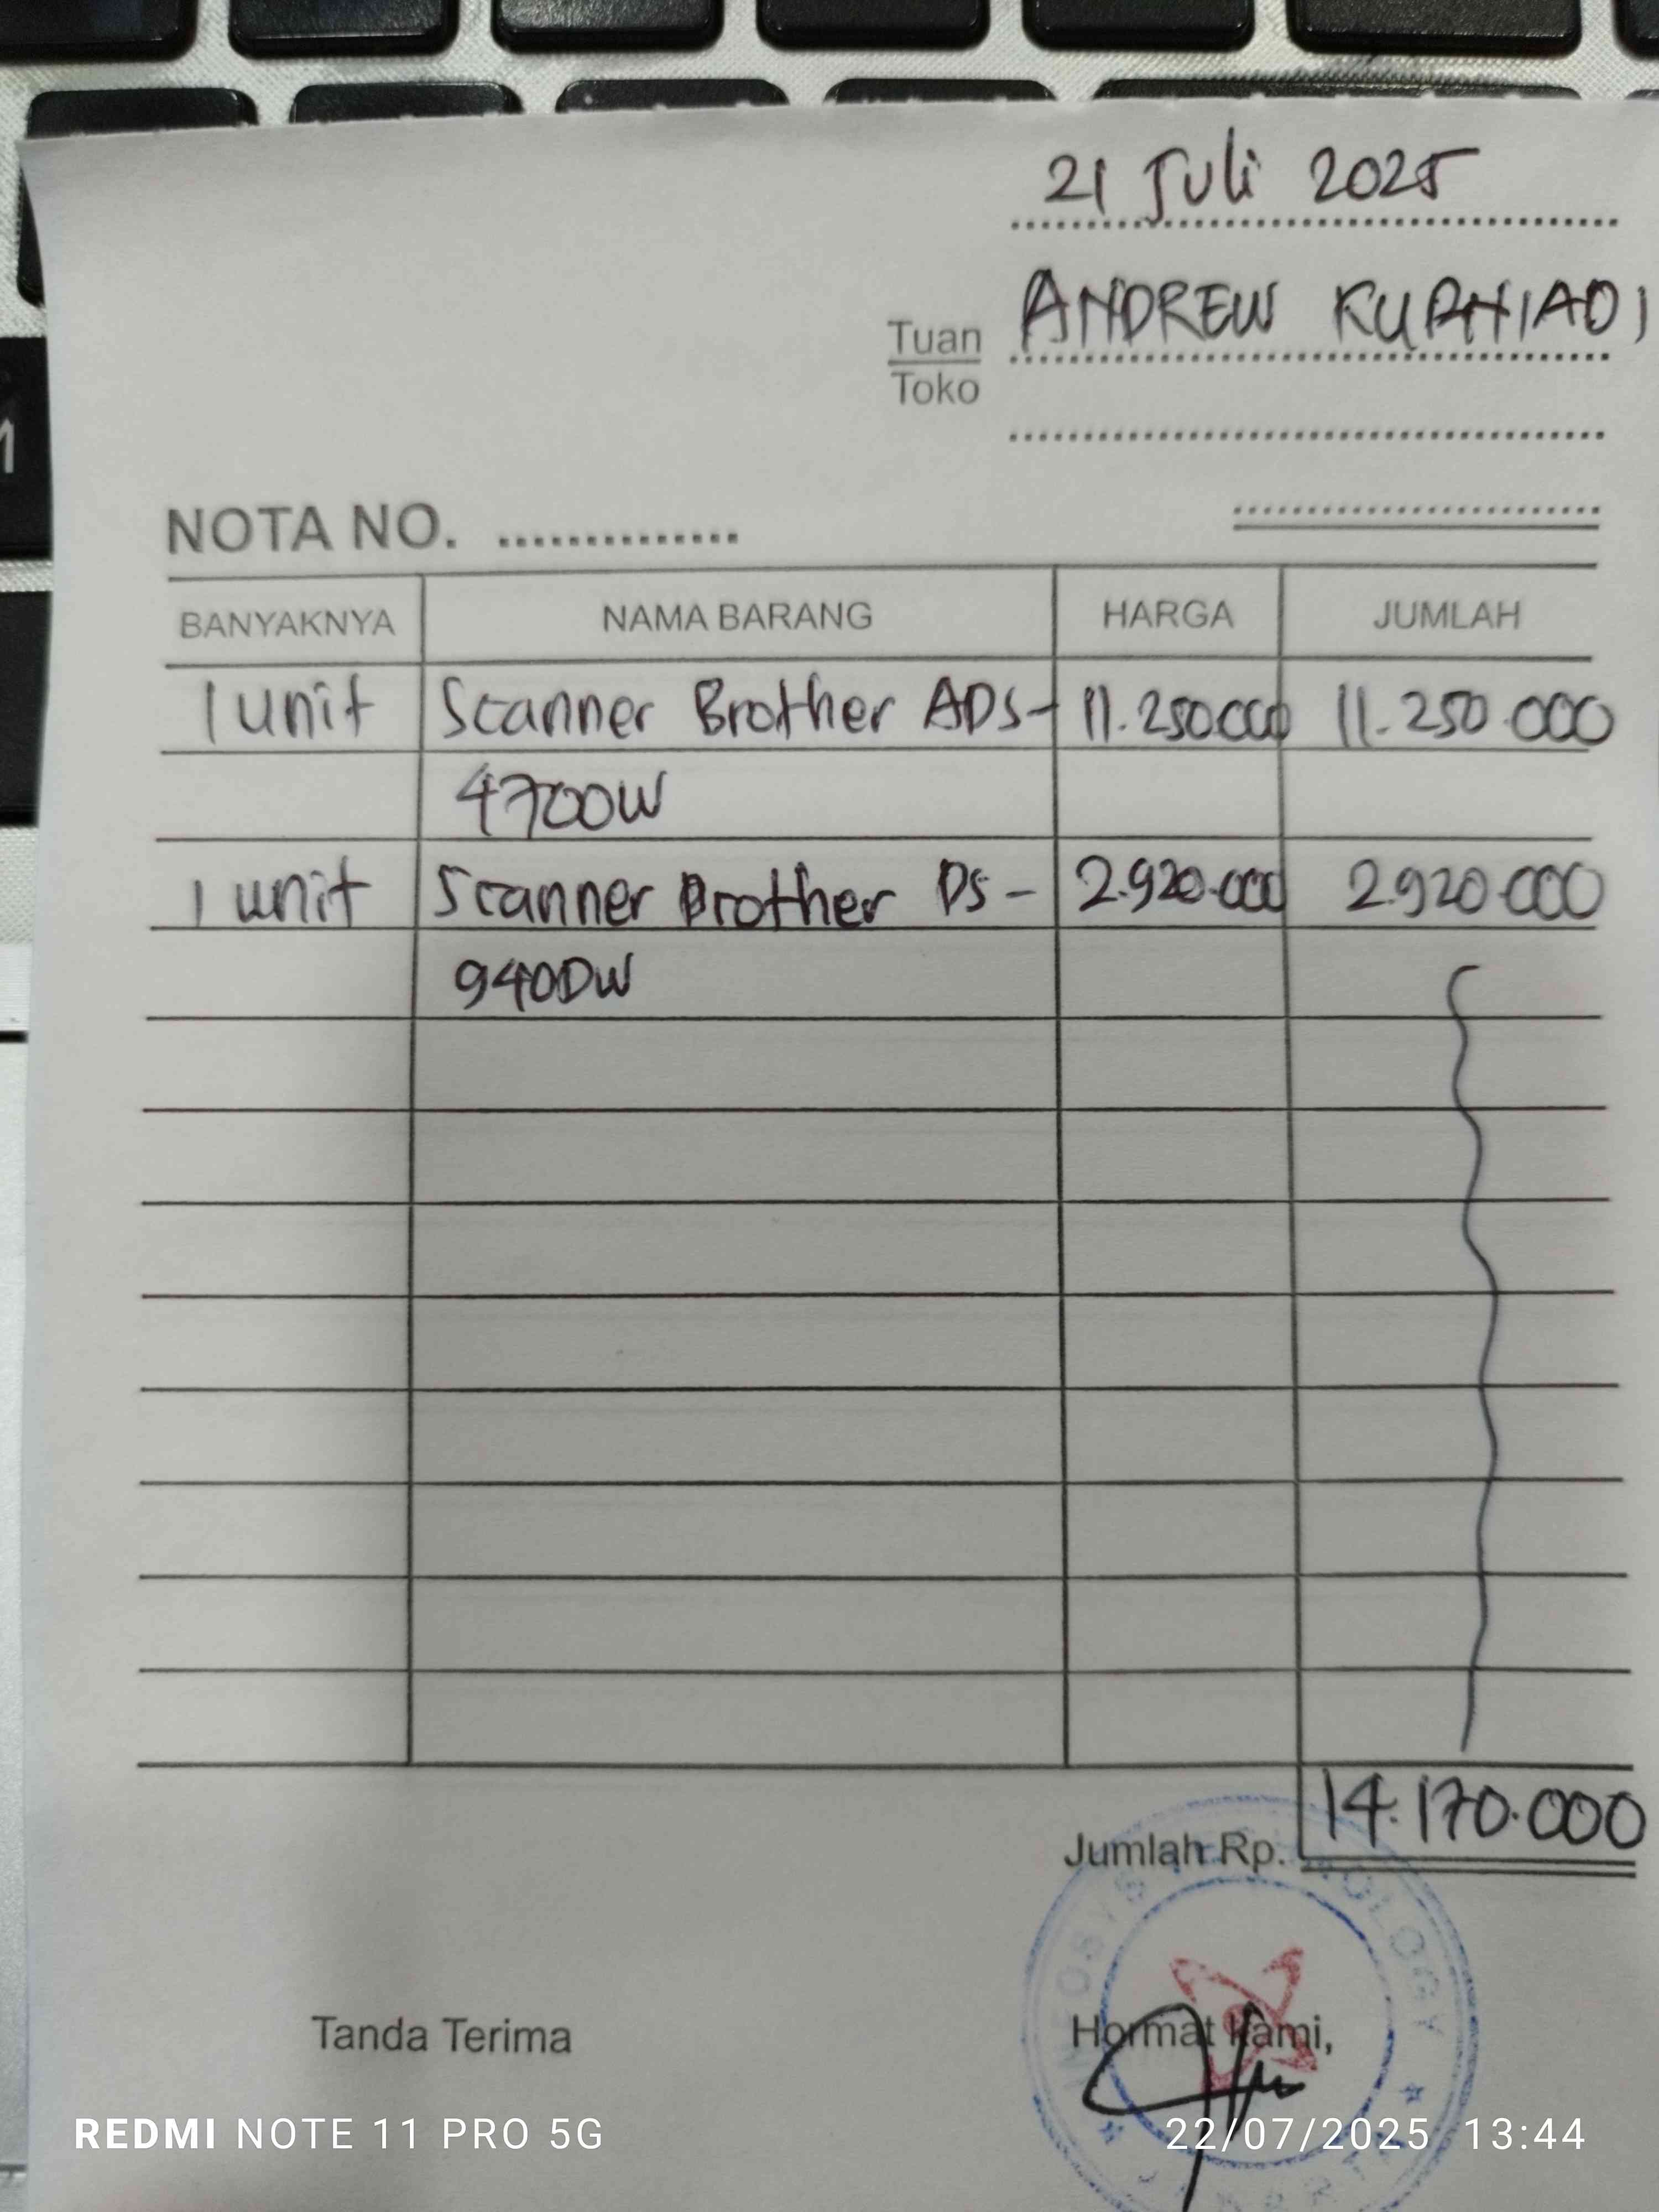 21 Juli 2025
Tuan ANDREW KURNIADI
Toko
NOTA NO. ..............
BANYAKNYA NAMA BARANG HARGA JUMLAH
1 unit Scanner Brother ADS- 11.250.000 11.250.000
4700W
1 unit Scanner Brother DS- 2.920.000 2.920.000
940DW
14.170.000
Jumlah Rp.
Tanda Terima Hormat Kami,
REDMI NOTE 11 PRO 5G 22/07/2025 13:44